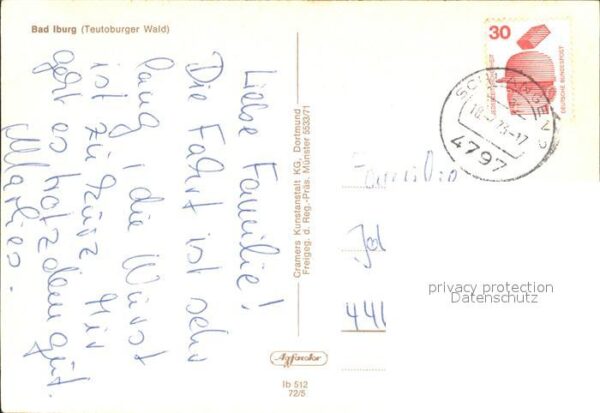 Bad Iburg (Teutoburger Wald)
Liebe Familie!
Die Fahrt ist sehr
lang, die Wurst
ist zu kurz. Mir
geht es trotzdem gut.
Marlies.
Cramers Kunstanstalt KG, Dortmund
Freigeg. d. Reg.-Präs. Münster 5533/71
Agfacolor
Ib 512
72/5
30
DEUTSCHE BUNDESPOST
SCHLANGEN
73-17
4797
Familie
Jo
441
privacy protection
Datenschutz